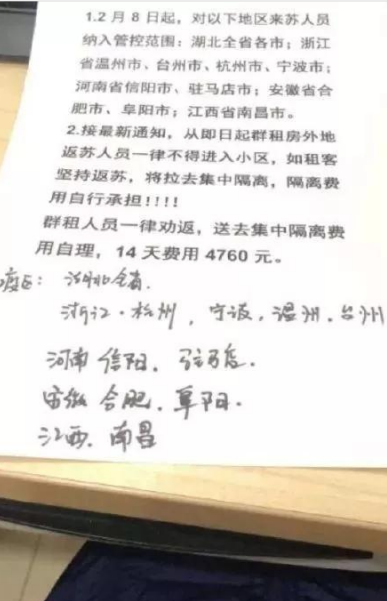 1.2 月 8 日起，对以下地区来苏人员
纳入管控范围：湖北全省各市；浙江
省温州市、台州市、杭州市、宁波市；
河南省信阳市、驻马店市；安徽省合
肥市、阜阳市；江西省南昌市。
2.接最新通知，从即日起群租房外地
返苏人员一律不得进入小区，如租客
坚持返苏，将拉去集中隔离，隔离费
用自行承担！！！！
群租人员一律劝返，送去集中隔离费
用自理，14 天费用 4760 元。
疫区：湖北全省.
浙江·杭州，宁波，温州.台州
河南 信阳.驻马店.
安徽 合肥.阜阳.
江西.南昌